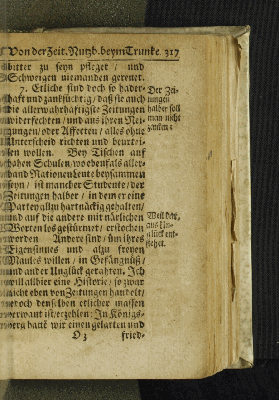 Von der Zeit. Nutzb. beym Trunke. 317
bitter zu seyn pfleget / und
Schweigen niemanden gereuet.
7. Etliche sind doch so hader-
haft und zanksüchtig / daß sie auch
die allerwahrhaftigste Zeitungen
widerfechten / und aus ihren Nei-
gungen / oder Affecten / alles ohne
Unterscheid richten und beurtei-
len wollen. Bey Tischen auf
hohen Schulen / woebenfals aller-
hand Nationen Leute beysammen
seyn / ist mancher Studente / der
Zeitungen halber / in dem er eine
Partey allzu hartnäckig gehalten /
und auf die andere mit närlichen
Worten los gestürmet / erstochen
worden Andere sind / üm ihres
Eigensinnes und alzu freyen
Maules willen / in Gefängnüß /
und ander Unglück gerahten. Ich
will alhier eine Historie / so zwar
nicht eben von Zeitungen handelt /
jedoch denselben etlicher massen
verwant ist / erzehlen: In Königs-
berg hatte wir einen gelarten und
O 3 fried-
Der Zei-
tungen
halber soll
man nicht
zanken:
Weil dar-
aus Un-
glück ent-
stehet.